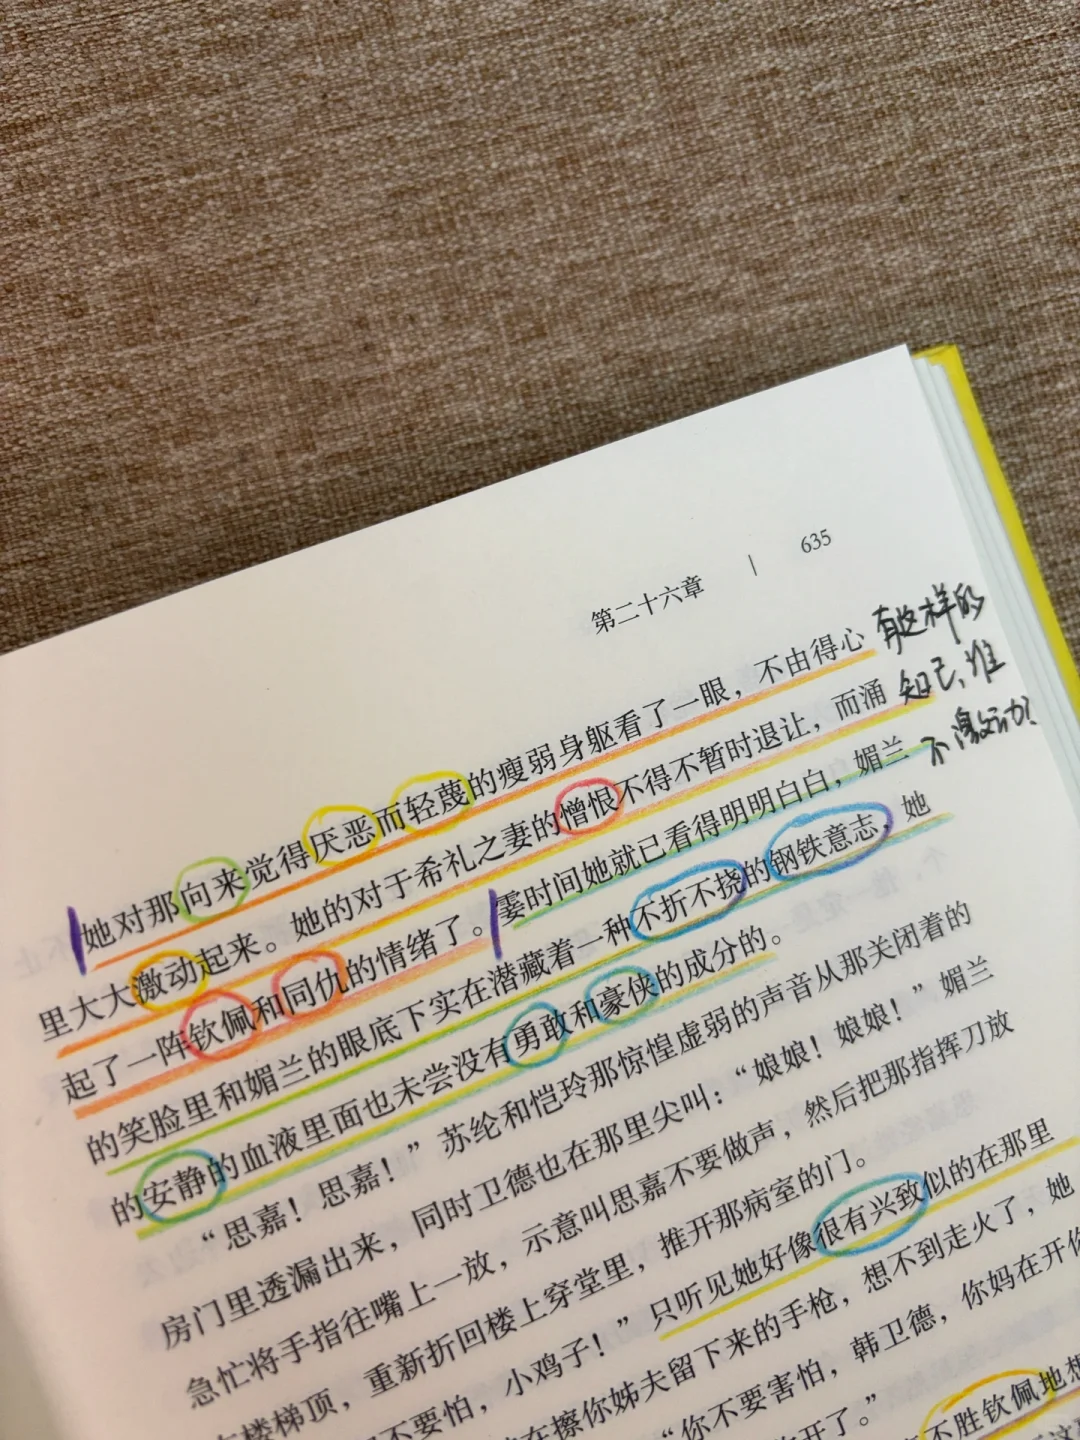 第二十六章 | 635
她对那向来觉得厌恶而轻蔑的瘦弱身躯看了一眼，不由得心
里大大激动起来。她的对于希礼之妻的憎恨不得不暂时退让，而涌
起了一阵钦佩和同仇的情绪了。霎时间她就已看得明明白白，媚兰
的笑脸里和媚兰的眼底下实在潜藏着一种不折不挠的钢铁意志，她
的安静的血液里面也未尝没有勇敢和豪侠的成分的。
“思嘉！思嘉！”苏纶和恺玲那惊惶虚弱的声音从那关闭着的
房门里透漏出来，同时卫德也在那里尖叫：“娘娘！娘娘！”媚兰
急忙将手指往嘴上一放，示意叫思嘉不要做声，然后把那指挥刀放
楼梯顶，重新折回楼上穿堂里，推开那病室的门。
不要怕，小鸡子！”只听见她好像很有兴致似的在那里
在擦你姊夫留下来的手枪，想不到走火了，她
“你不要害怕，韩卫德，你妈在开你
开了。”
不胜钦佩地想
有这样的
知己、谁
不激动？